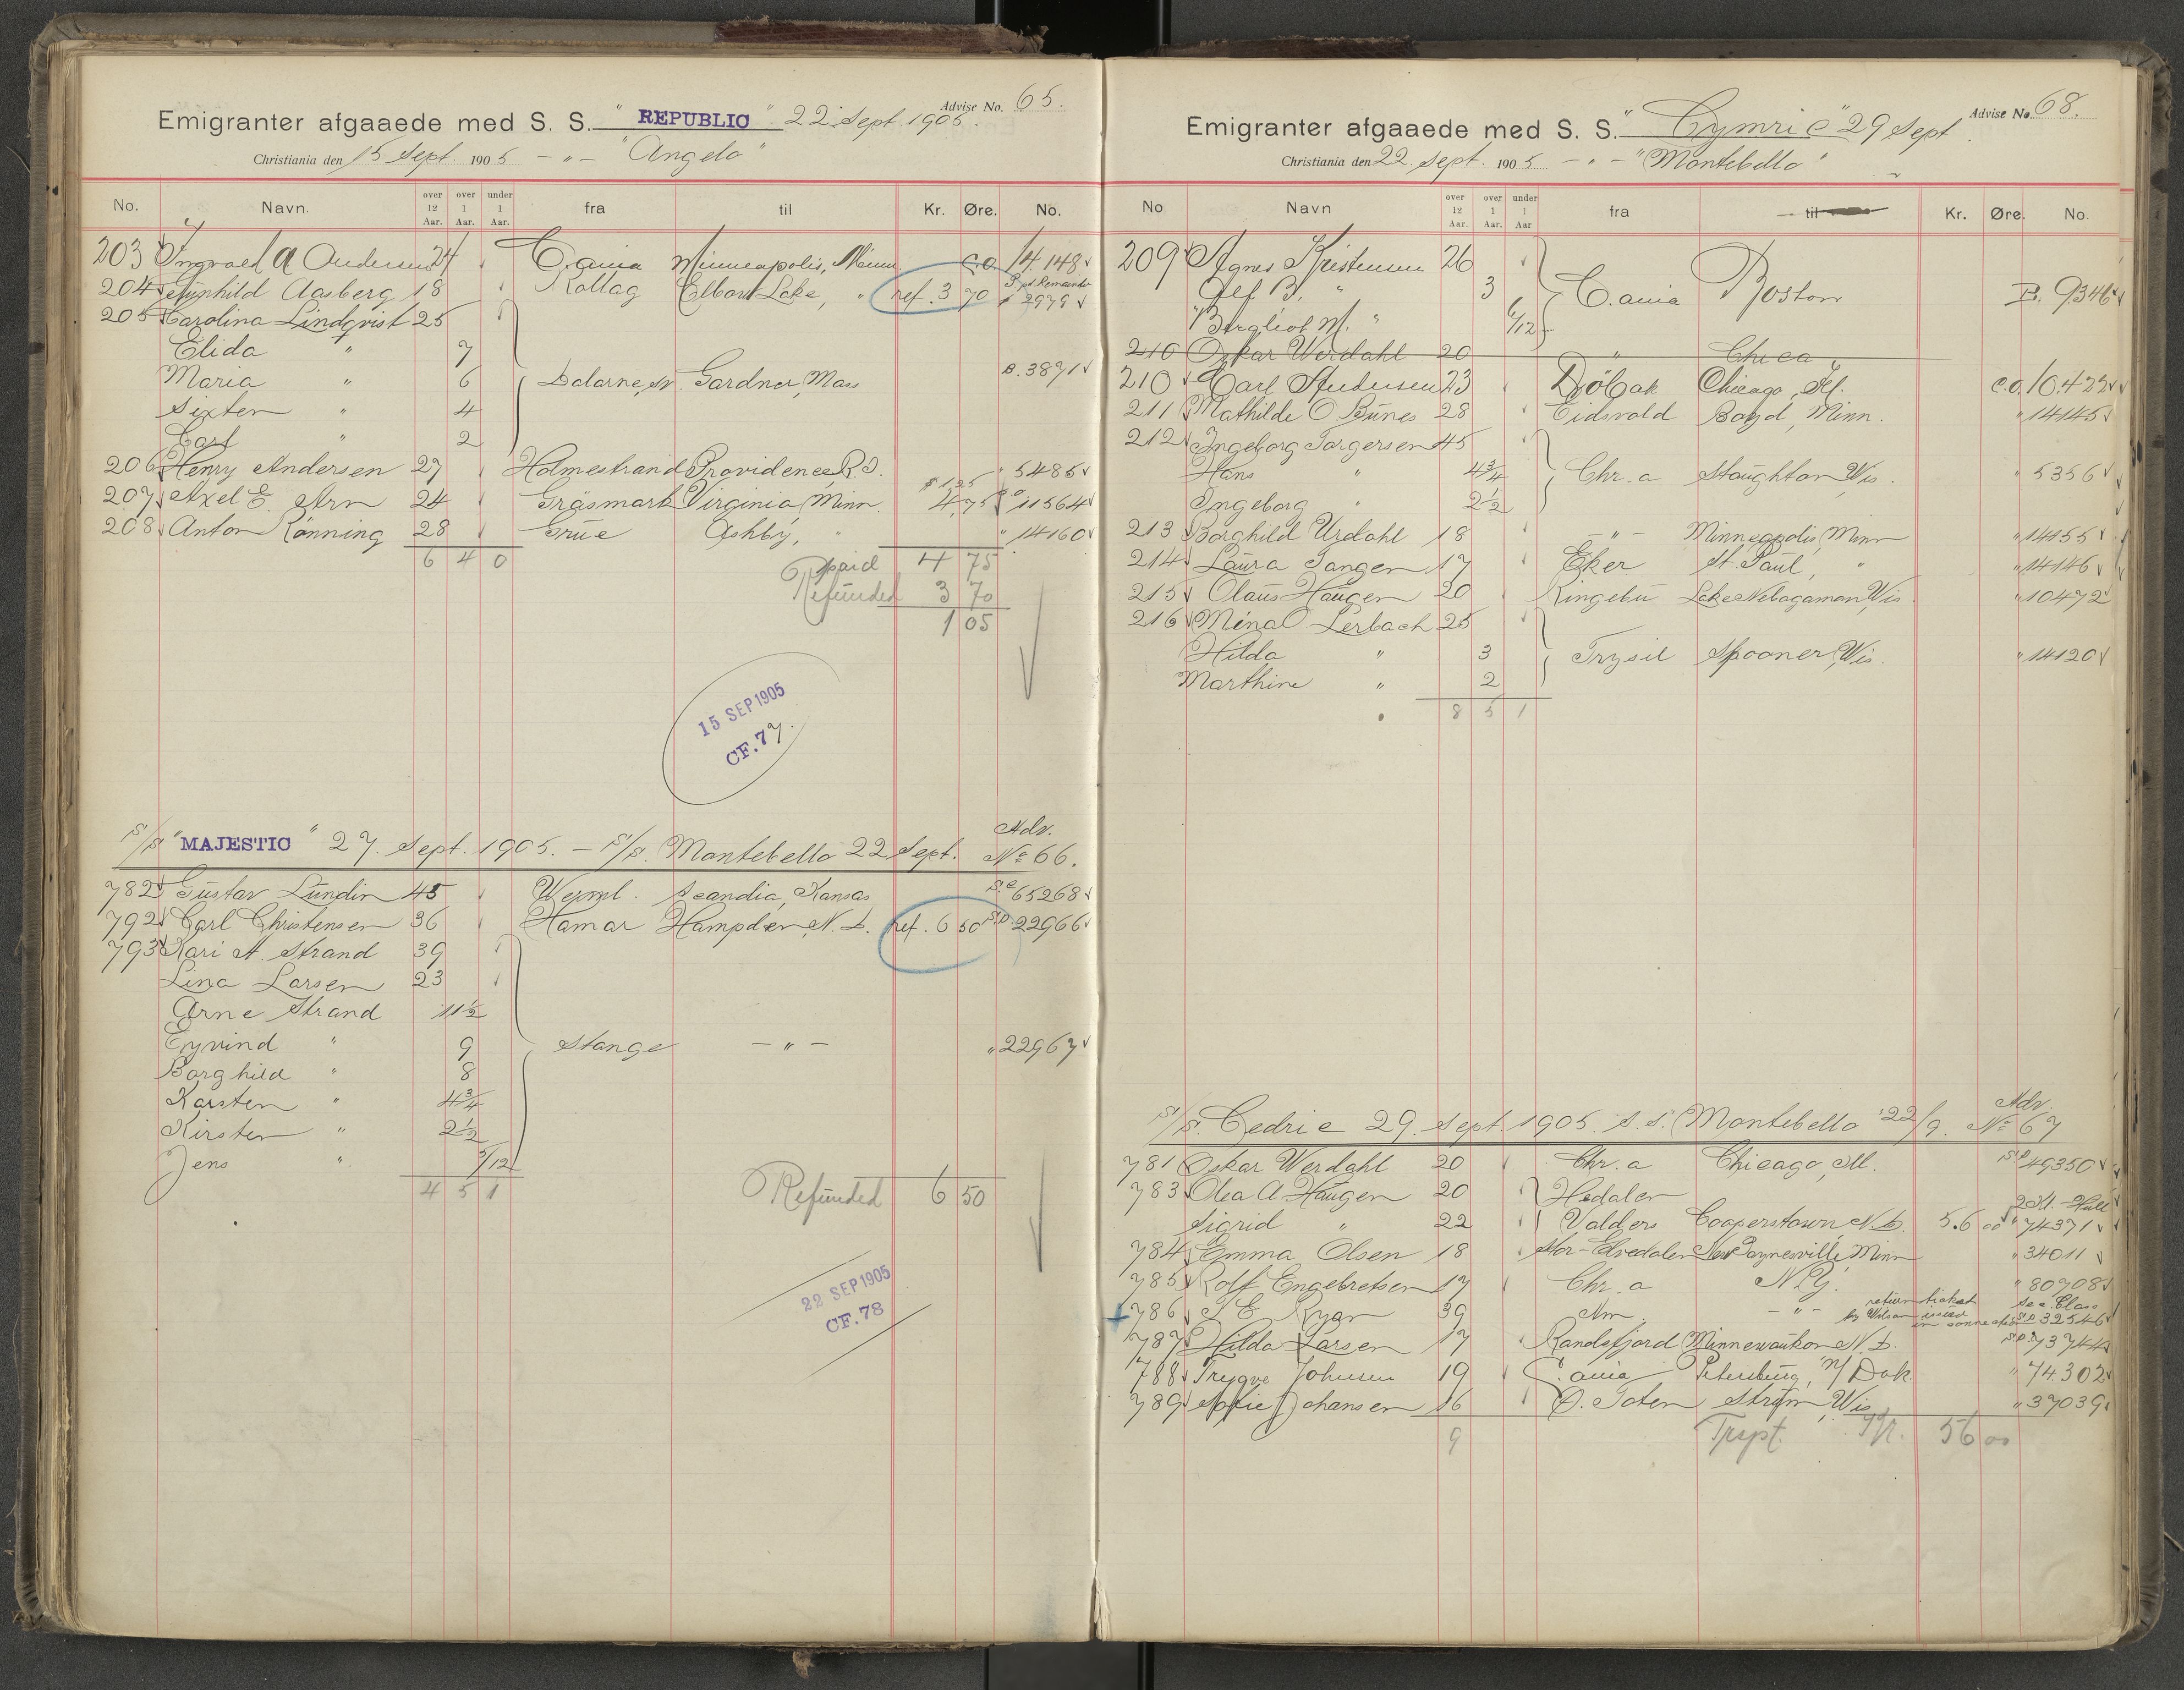 Advise No. 65.
Emigranter afgaaede med S. S. "REPUBLIC" 22 Sept. 1905.
Christiania den 15 Sept. 1905 - " - "Angelo"
No. Navn. over 12 Aar. over 1 Aar. under 1 Aar. fra til Kr. Øre. No.
203 Ingvald A Andersen 24 C.ania Minneapolis, Minn. C.O. 14.148
204 Aasberg 18 Rollag Elbow Lake, " ref. 3 70 2979
205 Carolina Lindqvist 25
Elida " 7
Maria " 6 Dalarne, Sv. Gardner, Mass B. 3891
Sixten " 4
Carl " 2
206 Henry Andersen 27 Holmestrand Providence, R.I. " 5485
207 Axel E. Arn 24 Gräsmark Virginia, Minn. $ 1.25 4,75 11564
208 Anton Rønning 28 Grue Ashby, " " 14160
6 4 0
paid 4 75
Refunded 3 70
1 05
15 SEP 1905
CF. 77.
S/S "MAJESTIC" 27. Sept. 1905. - S/S. Montebello 22 Sept. Adv. No 66.
782 Gustav Lundin 45 Werml. Scandia, Kansas 65268
792 Carl Christensen 36 Hamar Hampden, N. D. ref. 6 50 22966
793 Kari A. Strand 39
Lina Larsen 23
Arne Strand 11½
Eyvind " 9 Stange - " - " 22967
Borghild " 8
Karsten " 4¾
Kirsten " 2½
Jens " 5/12
4 5 1
Refunded 6 50
22 SEP 1905
CF. 78
Advise No. 68.
Emigranter afgaaede med S. S. "Cymric" 29 Sept.
Christiania den 22. Sept. 1905 - " - "Montebello"
No Navn over 12 Aar. over 1 Aar. under 1 Aar fra til Kr. Øre. No.
209 Agnes Kristensen 26
B. " 3 C.ania Boston B. 9346
Bergliot M. " 6/12
210 Oskar Werdahl 20 " Chica
210 Carl Andersen 23 Drøbak Chicago, Ill. C.O. 10.422
211 Mathilde O. Bunes 28 Eidsvold Boyd, Minn. " 14145
212 Ingeborg Torgersen 45
Hans " 4¾ Chr.a Stoughton, Wis. " 5356
Ingeborg " 2½
213 Borghild Urdahl 18 - " - Minneapolis, Minn " 14155
214 Laura Tangen 17 Eker St. Paul, " " 14146
215 Olaus Haugen 20 Ringebu Lake Nebagamon, Wis " 10472
216 Mina O. Lerbach 25
Hilda " 3 Trysil Spooner, Wis. " 14120
Marthine " 2
8 5 1
S/S. Cedric 29. Sept. 1905. S.S. Montebello 22/9. Adv. No 67
781 Oskar Werdahl 20 Chr.a Chicago, Ill. 49350
783 Olea A Haugen 20 Hedalen
Sigrid " 22 Valders Cooperstown N.D. 56 00 " 74371
784 Emma Olsen 18 Stor-Elvedalen New Paynesville, Minn " 34011
785 Rolf Engebretsen 17 Chr.a N.Y. " 80708
786 Ryan 39 Am. - " - return ticket by Wilson issued in connection Sec. Class 32546
787 Hilda Larsen 17 Randsfjord Minnewaukon N. D. 73744
788 Trygve Johnsen 19 C.ania Petersburg, N/Dak. " 74302
789 Sofie Johansen 16 Ø. Toten Strum, Wis " 37039
9
56 00